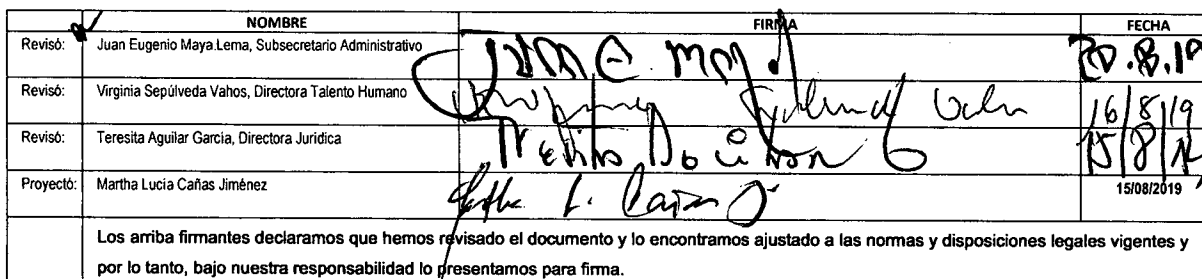 NOMBRE FIRMA FECHA
Revisó: Juan Eugenio Maya.Lema, Subsecretario Administrativo 20.8.19
Revisó: Virginia Sepúlveda Vahos, Directora Talento Humano 16/8/19
Revisó: Teresita Aguilar García, Directora Jurídica 15/8/19
Proyectó: Martha Lucía Cañas Jiménez 15/08/2019
Los arriba firmantes declaramos que hemos revisado el documento y lo encontramos ajustado a las normas y disposiciones legales vigentes y
por lo tanto, bajo nuestra responsabilidad lo presentamos para firma.